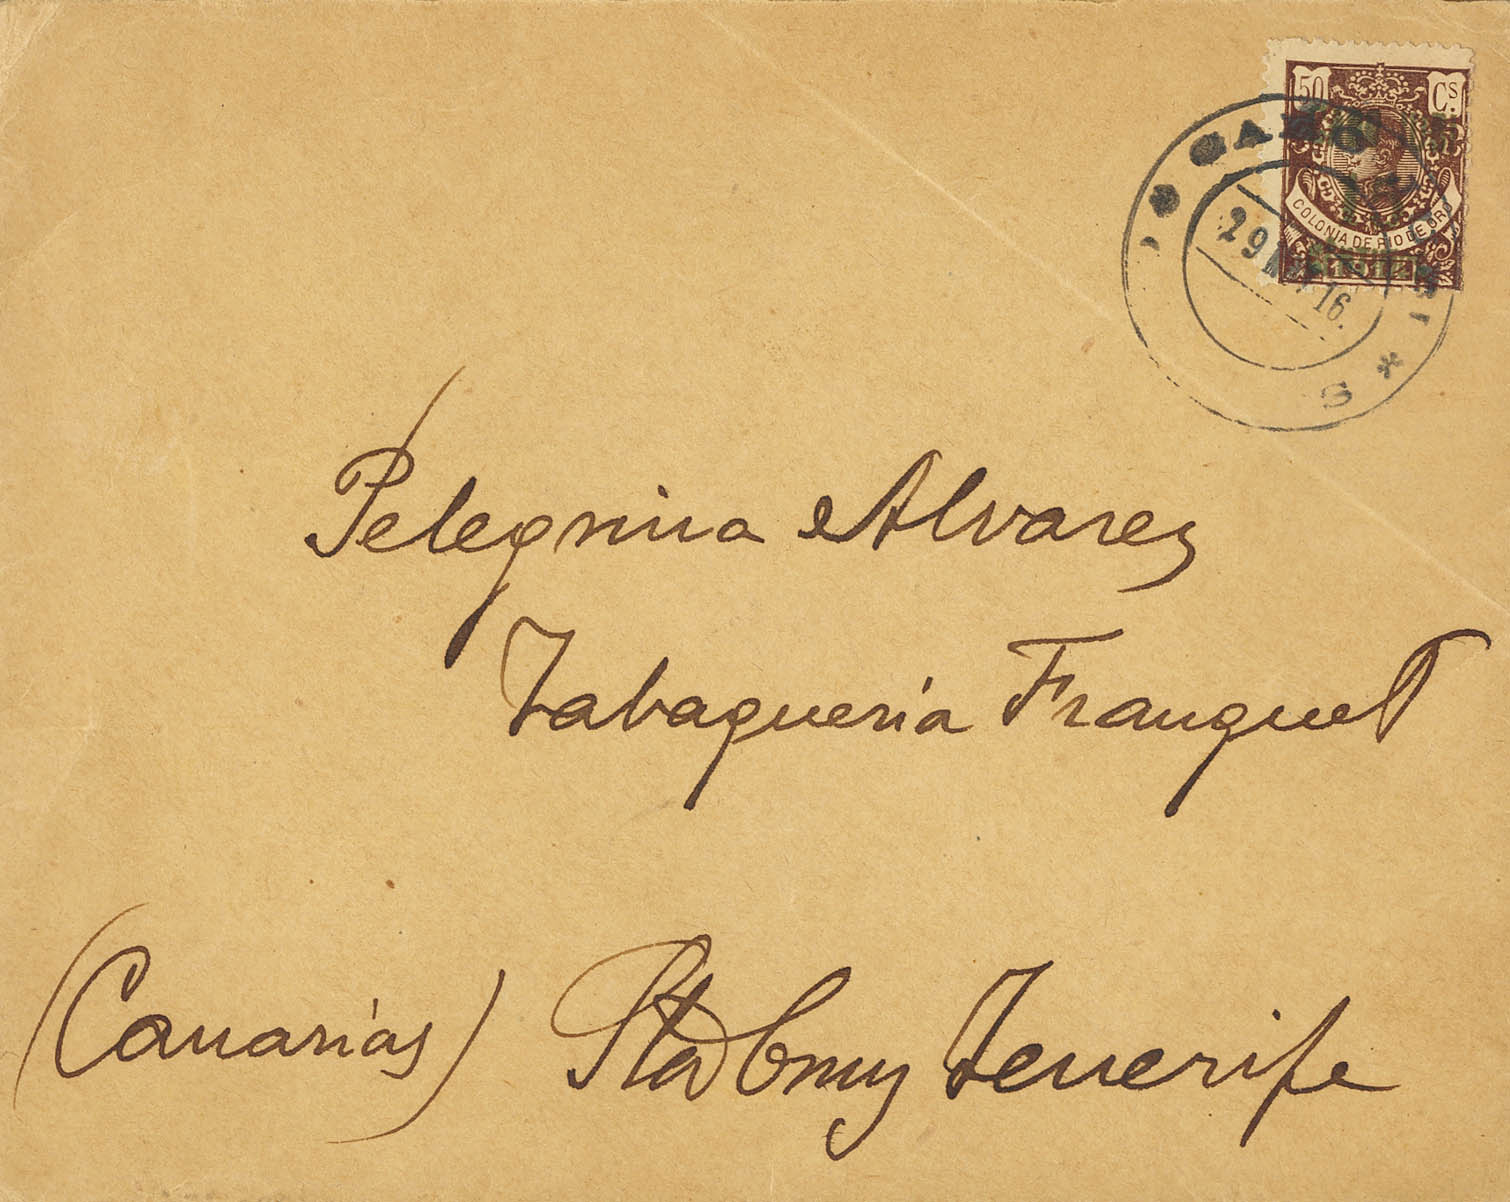 50 Cs.
COLONIA DE RIO DE ORO
1914
29 16.
Pelegrina Alvarez
Tabaqueria Franquet
(Canarias) Sta Cruz Tenerife